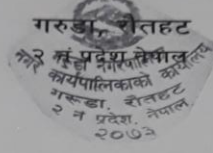 गरुडा, रौतहट
२ नं प्रदेश नेपाल
नगर कार्यपालिकाको कार्यालय
गरुडा, रौतहट
२ नं प्रदेश, नेपाल
२०७३